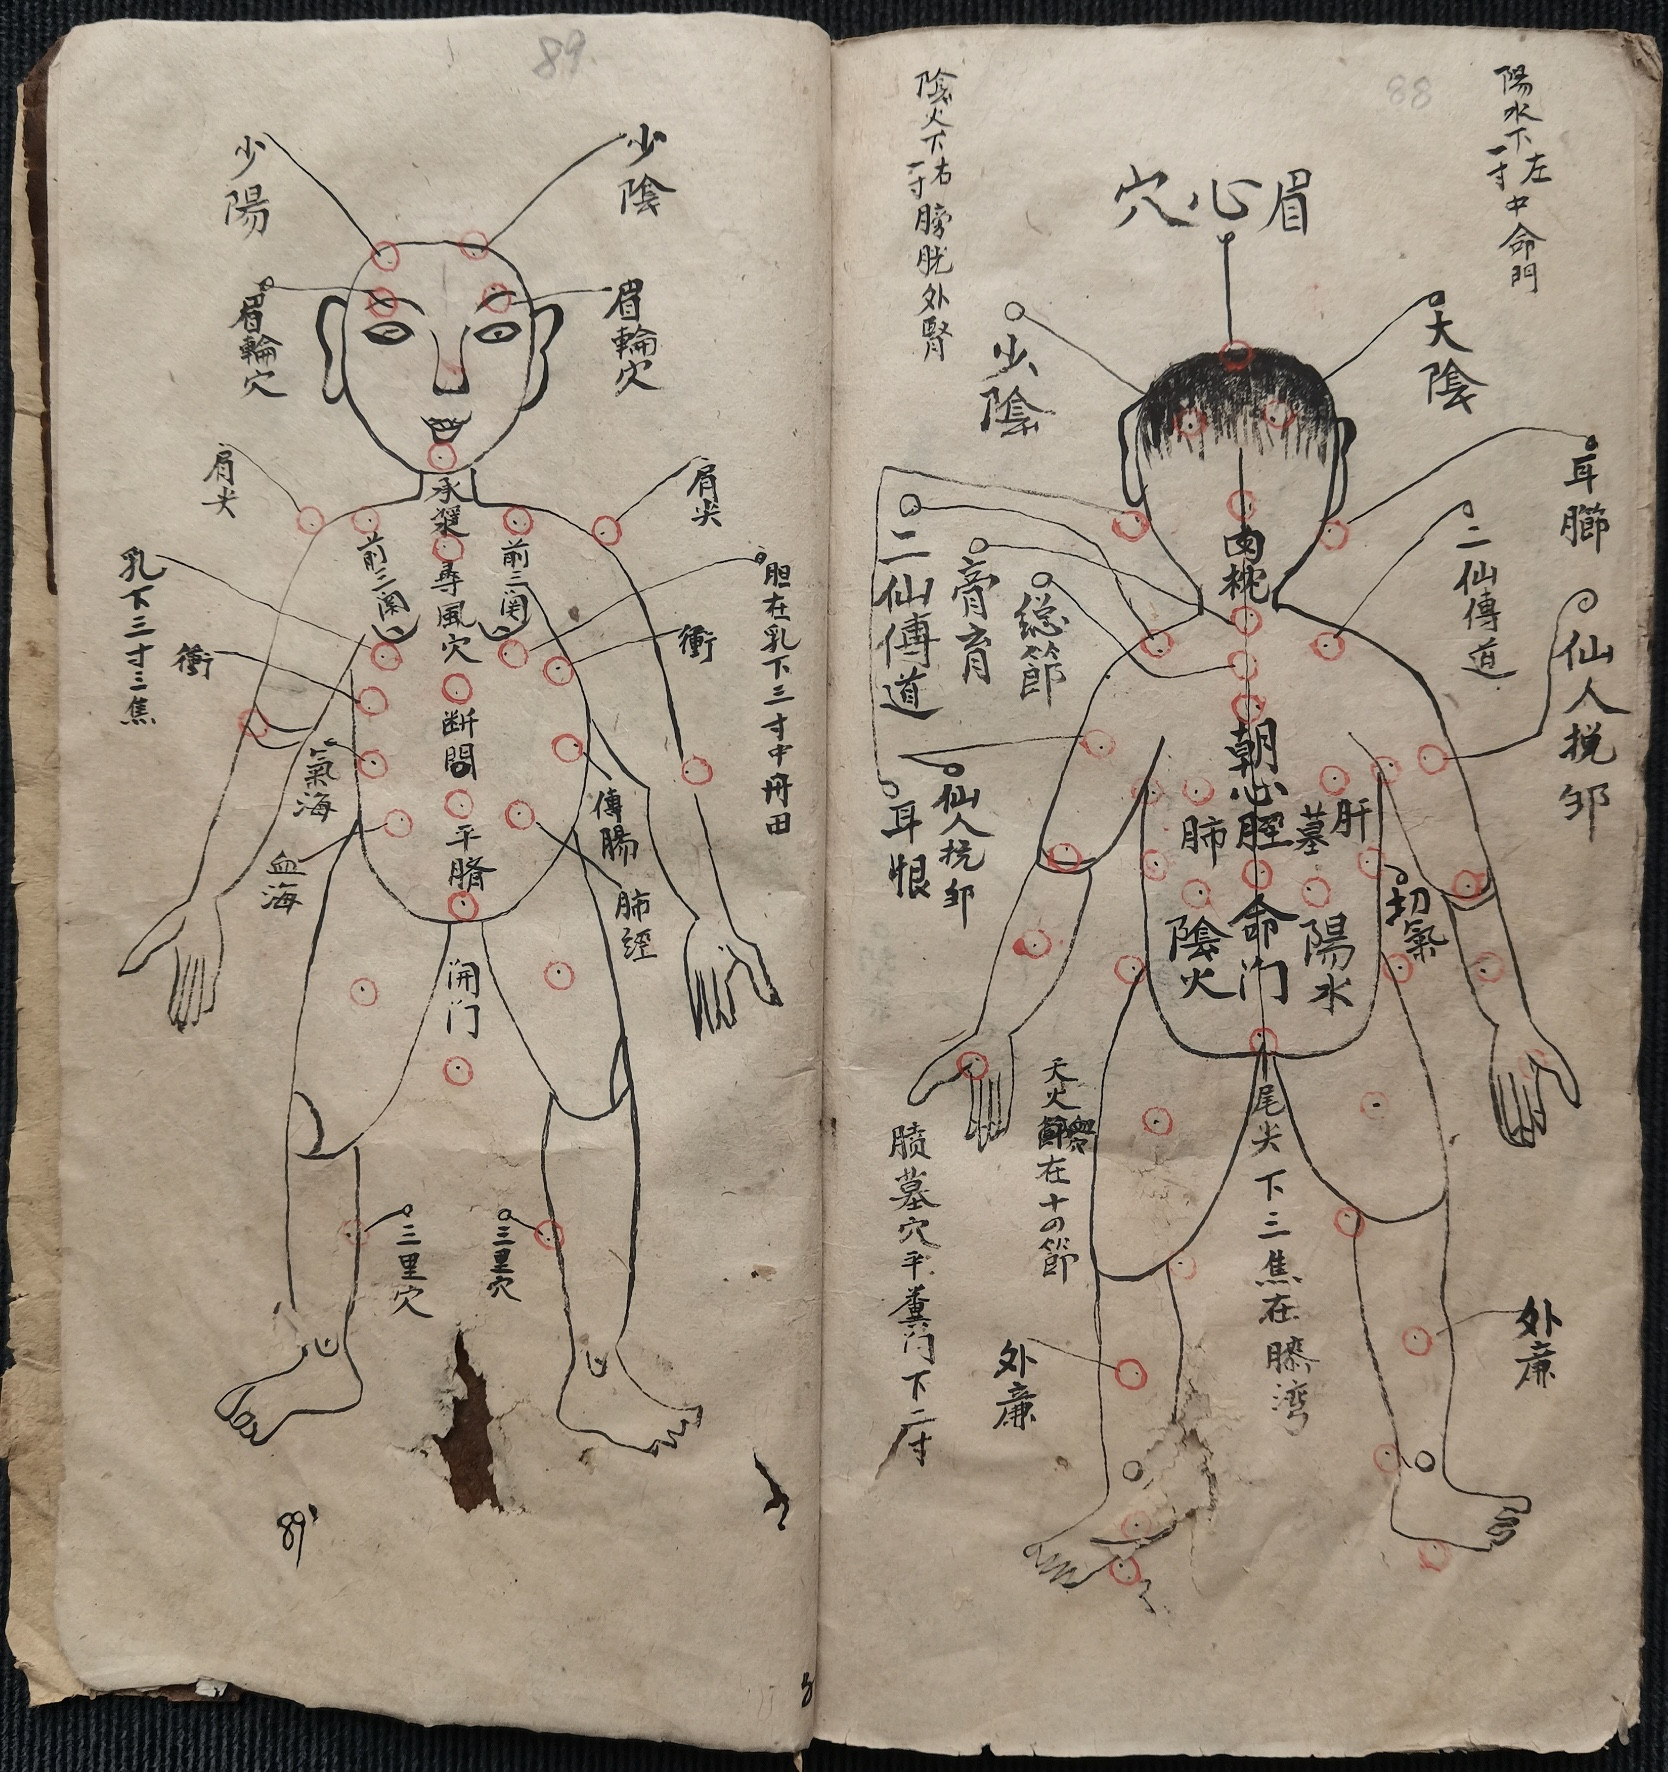 88
陽水下左一寸中命門
眉心穴
大陰
耳腦
二仙傳道
仙人挽邹
少陰
陰火下右一寸膀胱外腎
二仙傳道
膏育
総節
仙人挽邹
耳恨
枕
朝心
肝
墓
肺
命门
陽水
陰火
刧氣
尾尖下三焦在膝湾
天火
在十の節
膹墓穴平糞门下二寸
外廉
外廉
89
少陰
少陽
眉輪穴
眉輪穴
肩尖
肩尖
承漿
前三関
前三関
尋風穴
胆在乳下三寸中丹田
乳下三寸三焦
衝
衝
断間
氣海
血海
平臍
傳腸
肺經
開门
三里穴
三里穴
89